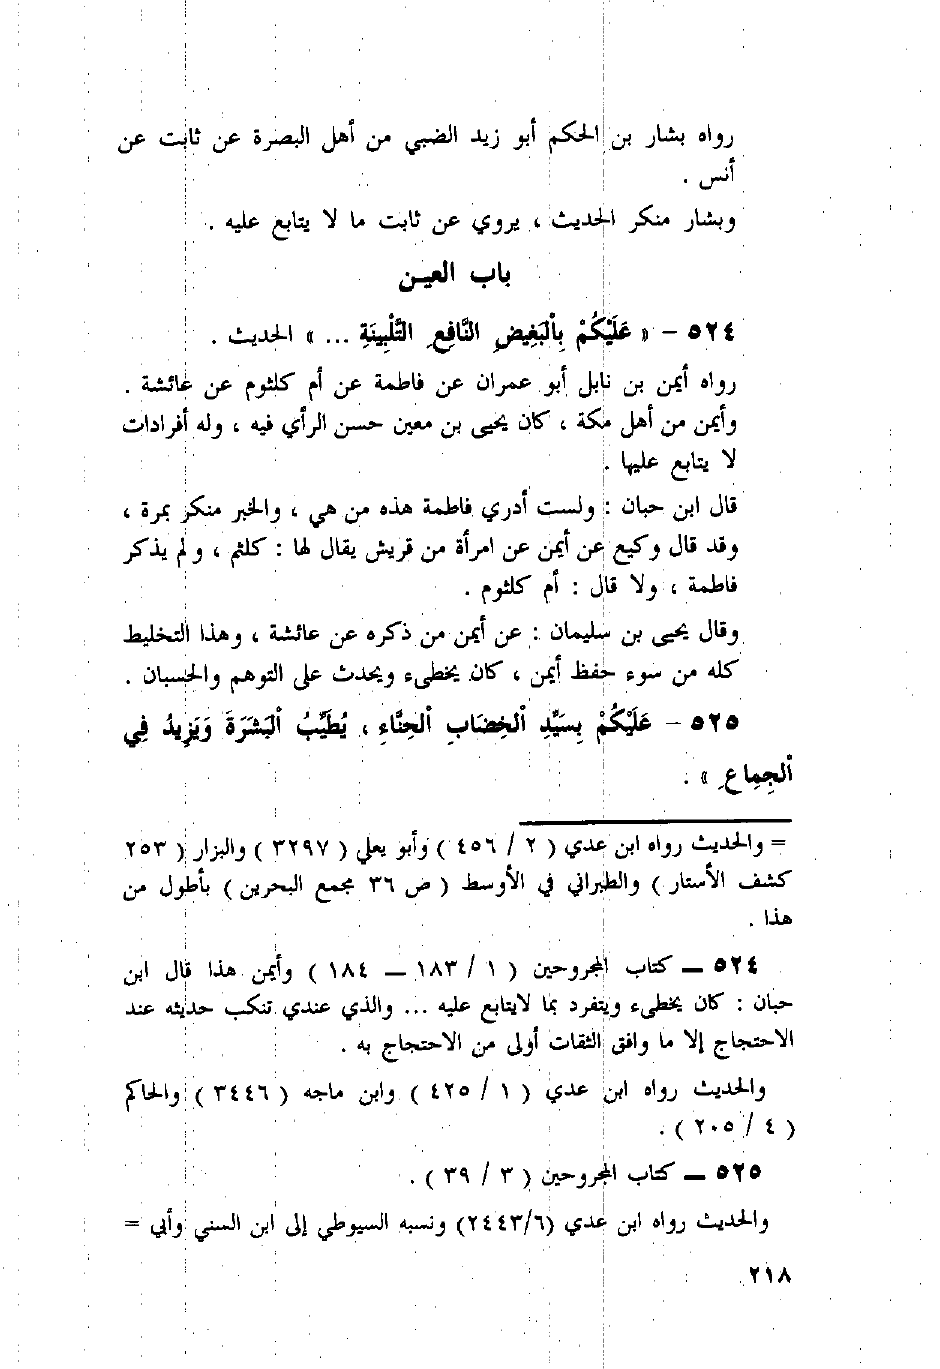 رواه بشار بن الحكم أبو زيد الضبي من أهل البصرة عن ثابت عن
أنس .
وبشار منكر الحديث ، يروي عن ثابت ما لا يتابع عليه .
باب العيـن
٥٢٤ – « عَلَيْكُمْ بِالْبَغِيضِ النَّافِعِ التَّلْبِينَةِ ... » الحديث .
رواه أيمن بن نابل أبو عمران عن فاطمة عن أم كلثوم عن عائشة .
وأيمن من أهل مكة ، كان يحيى بن معين حسن الرأي فيه ، وله أفرادات
لا يتابع عليها .
قال ابن حبان : ولست أدري فاطمة هذه من هي ، والخبر منكر بمرة ،
وقد قال وكيع عن أيمن عن امرأة من قريش يقال لها : كلثم ، ولم يذكر
فاطمة ، ولا قال : أم كلثوم .
وقال يحيى بن سليمان : عن أيمن من ذكره عن عائشة ، وهذا التخليط
كله من سوء حفظ أيمن ، كان يخطىء ويحدث على التوهم والحسبان .
٥٢٥ – عَلَيْكُمْ بِسَيِّدِ ٱلْخِضَابِ ٱلْحِنَّاءِ ، يُطَيِّبُ ٱلْبَشَرَةَ وَيَزِيدُ فِي
ٱلْجِمَاعِ » .
= والحديث رواه ابن عدي ( ٢ / ٤٥٦ ) وأبو يعلي ( ٣٢٩٧ ) والبزار ( ٢٥٣
كشف الأستار ) والطبراني في الأوسط ( ص ٣٦ مجمع البحرين ) بأطول من
هذا .
٥٢٤ — كتاب المجروحين ( ١ / ١٨٣ — ١٨٤ ) وأيمن هذا قال ابن
حبان : كان يخطىء ويتفرد بما لايتابع عليه ... والذي عندي تنكب حديثه عند
الاحتجاج إلا ما وافق الثقات أولى من الاحتجاج به .
والحديث رواه ابن عدي ( ١ / ٤٢٥ ) وابن ماجه ( ٣٤٤٦ ) والحاكم
( ٤ / ٢٠٥ ) .
٥٢٥ — كتاب المجروحين ( ٣ / ٣٩ ) .
والحديث رواه ابن عدي (٢٤٤٣/٦) ونسبه السيوطي إلى ابن السني وأبي =
٢١٨